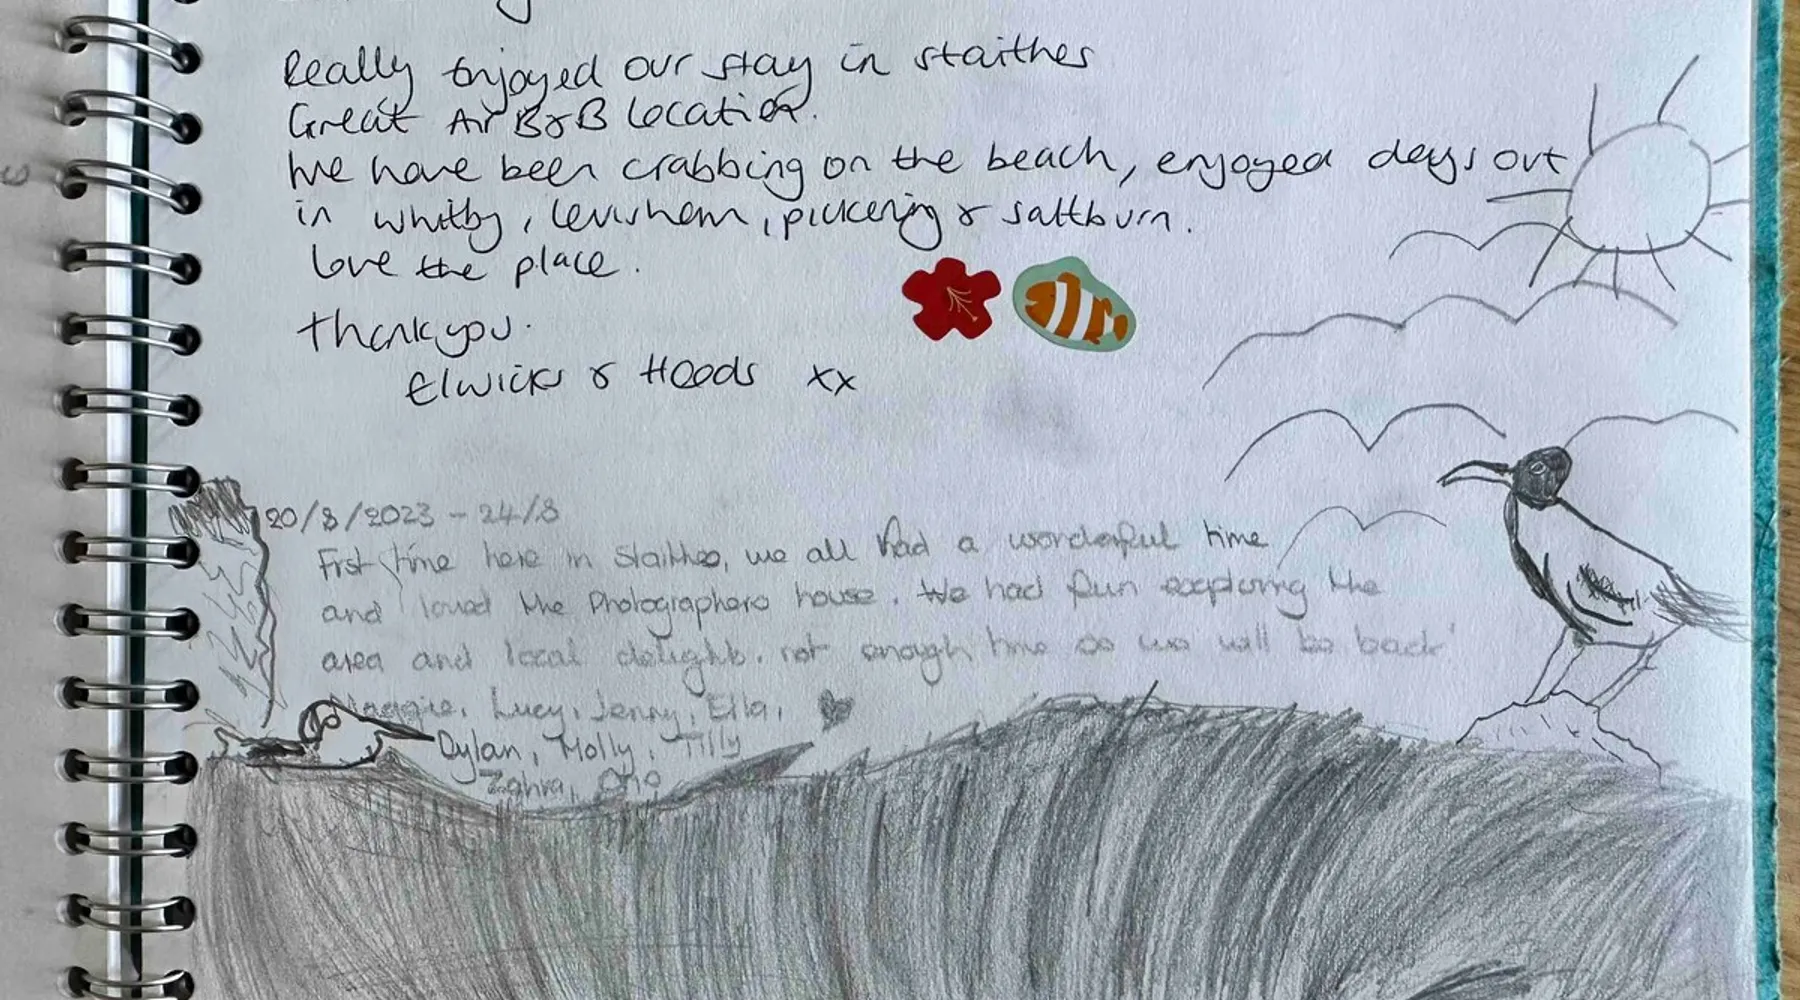 Really Enjoyed our stay in staithes
Great Air B&B location.
We have been crabbing on the beach, enjoyed days out
in whitby, levisham, pickering & saltburn.
love the place.
thankyou.
Elwicks & Hoods xx
20/8/2023 - 24/8
First time here in Staithes, we all had a wonderful time
and loved the Photographers house. We had fun exploring the
area and local delights. not enough time so we will be back!
Maggie, Lucy, Jenny, Ella,
Dylan, Molly, Tilly
Zahra,